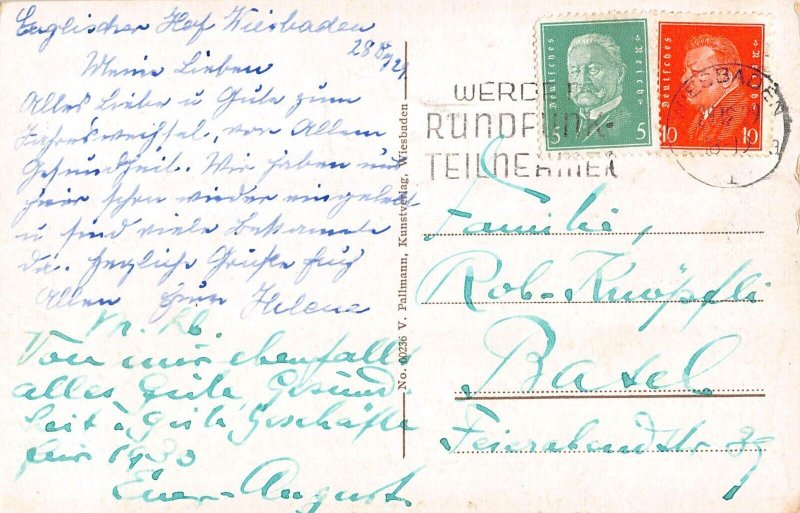 Englischer Hof Wiesbaden
28
Meine Lieben
Alles Liebe u Gute zum
Jahreswechsel, vor Allem
Gesundheit. Wir haben uns
hier schon wieder eingelebt
u sind viele Bekannte
da. Herzliche Grüße Euch
Allen Helene
Von mir ebenfalls
alles Gute, Gesund-
heit u. Gute Geschäfte
für 1930
Euer August
No. 00236 V. Pallmann, Kunstverlag, Wiesbaden
Deutsches Reich
5 5
Deutsches Reich
10 10
WIESBADEN
1
WERDET
RUNDFUNK-
TEILNEHMER
Familie,
Rob. Knöpfli
Basel
Feierabendstr 39